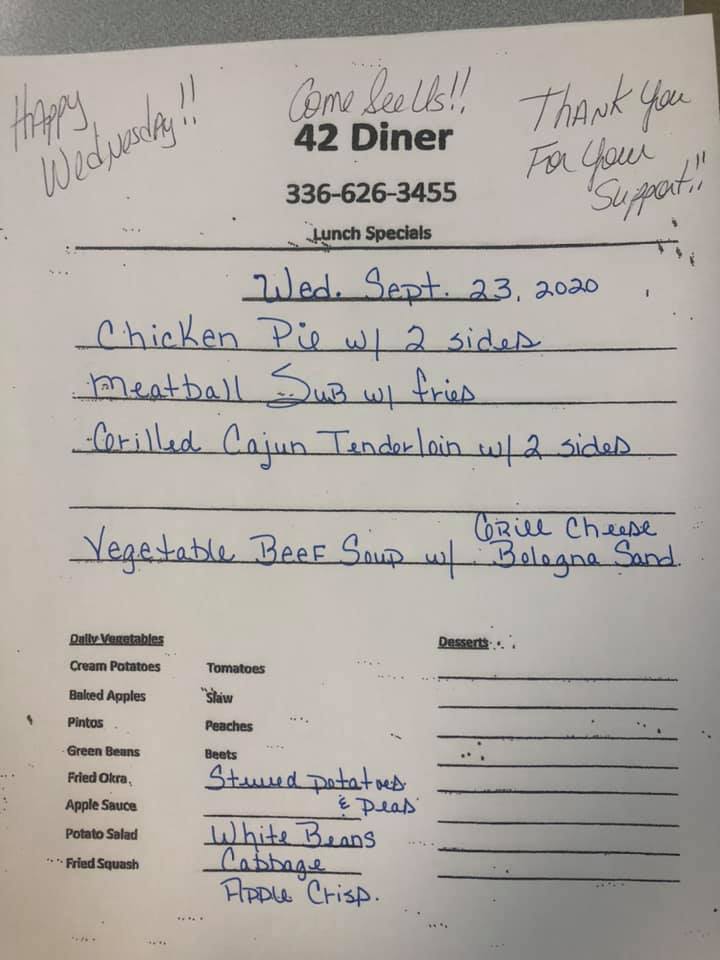 Happy Wednesday!!
Come See Us!!
Thank You
For Your
Support!!
42 Diner
336-626-3455
Lunch Specials
Wed. Sept. 23, 2020
Chicken Pie w/ 2 sides
Meatball Sub w/ fries
Grilled Cajun Tenderloin w/ 2 sides
Grill Cheese
Vegetable Beef Soup w/ Bologna Sand.
Daily Vegetables
Cream Potatoes
Baked Apples
Pintos
Green Beans
Fried Okra
Apple Sauce
Potato Salad
Fried Squash
Tomatoes
Slaw
Peaches
Beets
Stewed potatoes
& Peas
White Beans
Cabbage
Apple Crisp.
Desserts